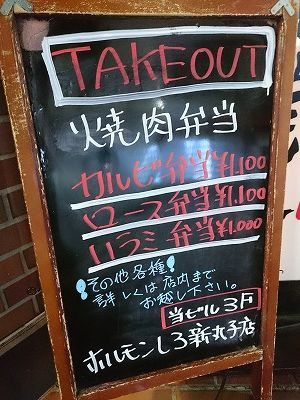 TAKEOUT
焼肉弁当
カルビ弁当¥1,100
ロース弁当¥1,100
ハラミ弁当¥1,000
その他各種!
詳しくは店内まで
お越し下さい。
当ビル3F
ホルモンしろ新丸子店